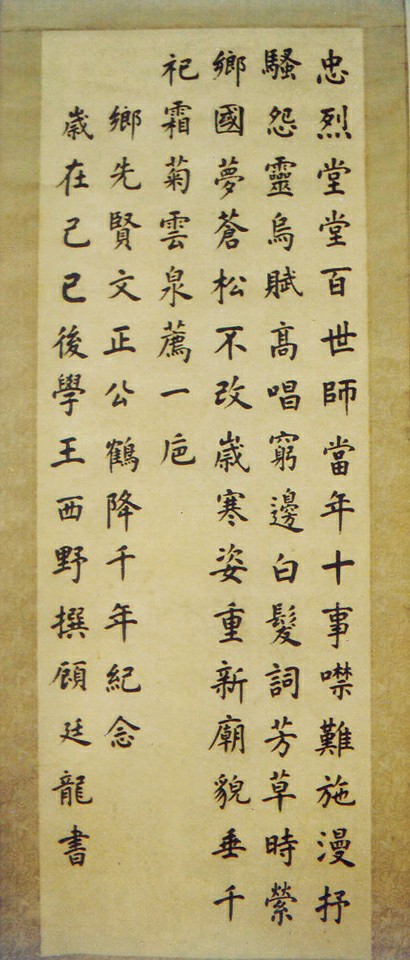 忠烈堂堂百世師當年十事噤難施漫抒
騷怨靈烏賦高唱窮邊白髮詞芳草時縈
鄉國夢蒼松不改歲寒姿重新廟貌垂千
祀霜菊雲泉薦一卮
鄉先賢文正公鶴降千年紀念
歲在己巳後學王西野撰顧廷龍書